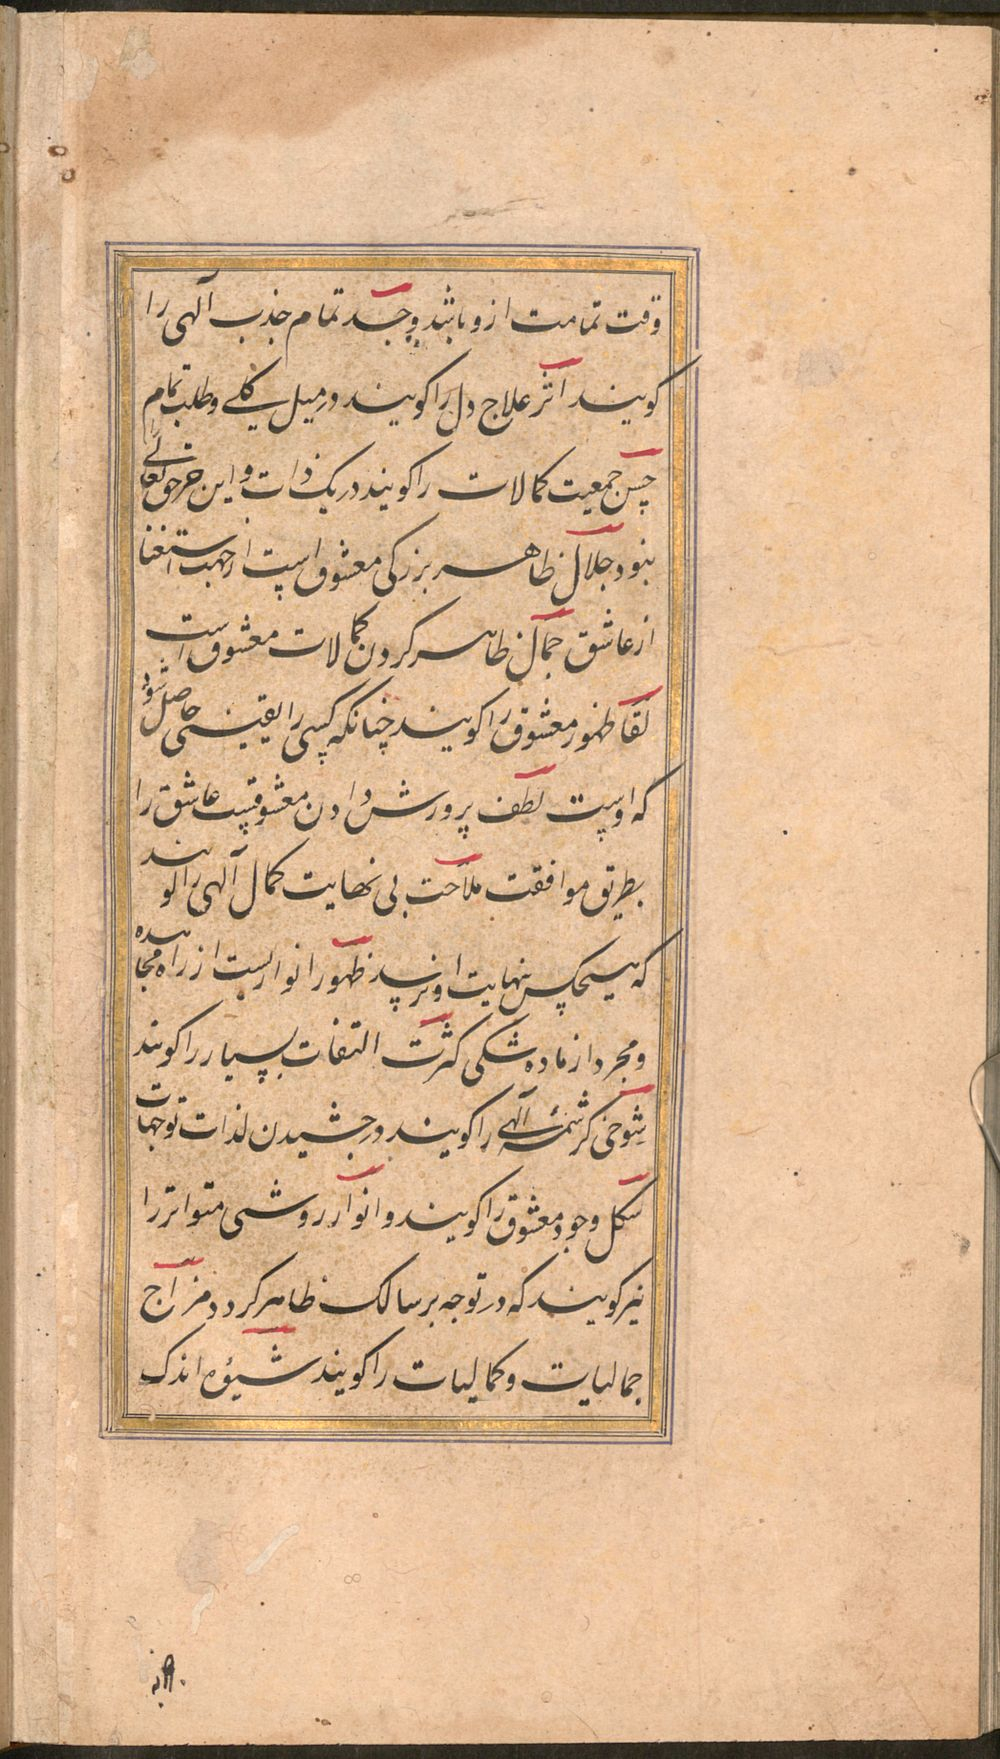 وقت تمامت ازو باشد وجد تمام جذب الهی را
کویند اثر علاج دل را کویند در میل کلی وطلب تمام
حسن جمعیت کمالات را کویند در یک ذات و این جز حق تعالی
نبود جلال ظاهر بزرکی معشوق است از جهت استغنا
از عاشق جمال ظاهر کردن کمالات معشوق است
لقا ظهور معشوق را کویند چنانکه کسی را یقینی حاصل شود
که اوست لطف پرورش دادن معشوقست عاشق را
بطریق موافقت ملاحت بی نهایت کمال الهی را کویند
که هیچکس بنهایت او نرسد ظهور انواریست از راه مجاهده
و مجرد از ماده شکی کثرت التفات بسیار را کویند
شوخی کرشمهٔ الهی را کویند در چشیدن لذات توجهات
شکل وجود معشوق را کویند و انوار روشنی متواتر را
نیز کویند که در توجه بر سالک ظاهر کردد مزاج
جمالیات و کمالیات را کویند شیوه اندک